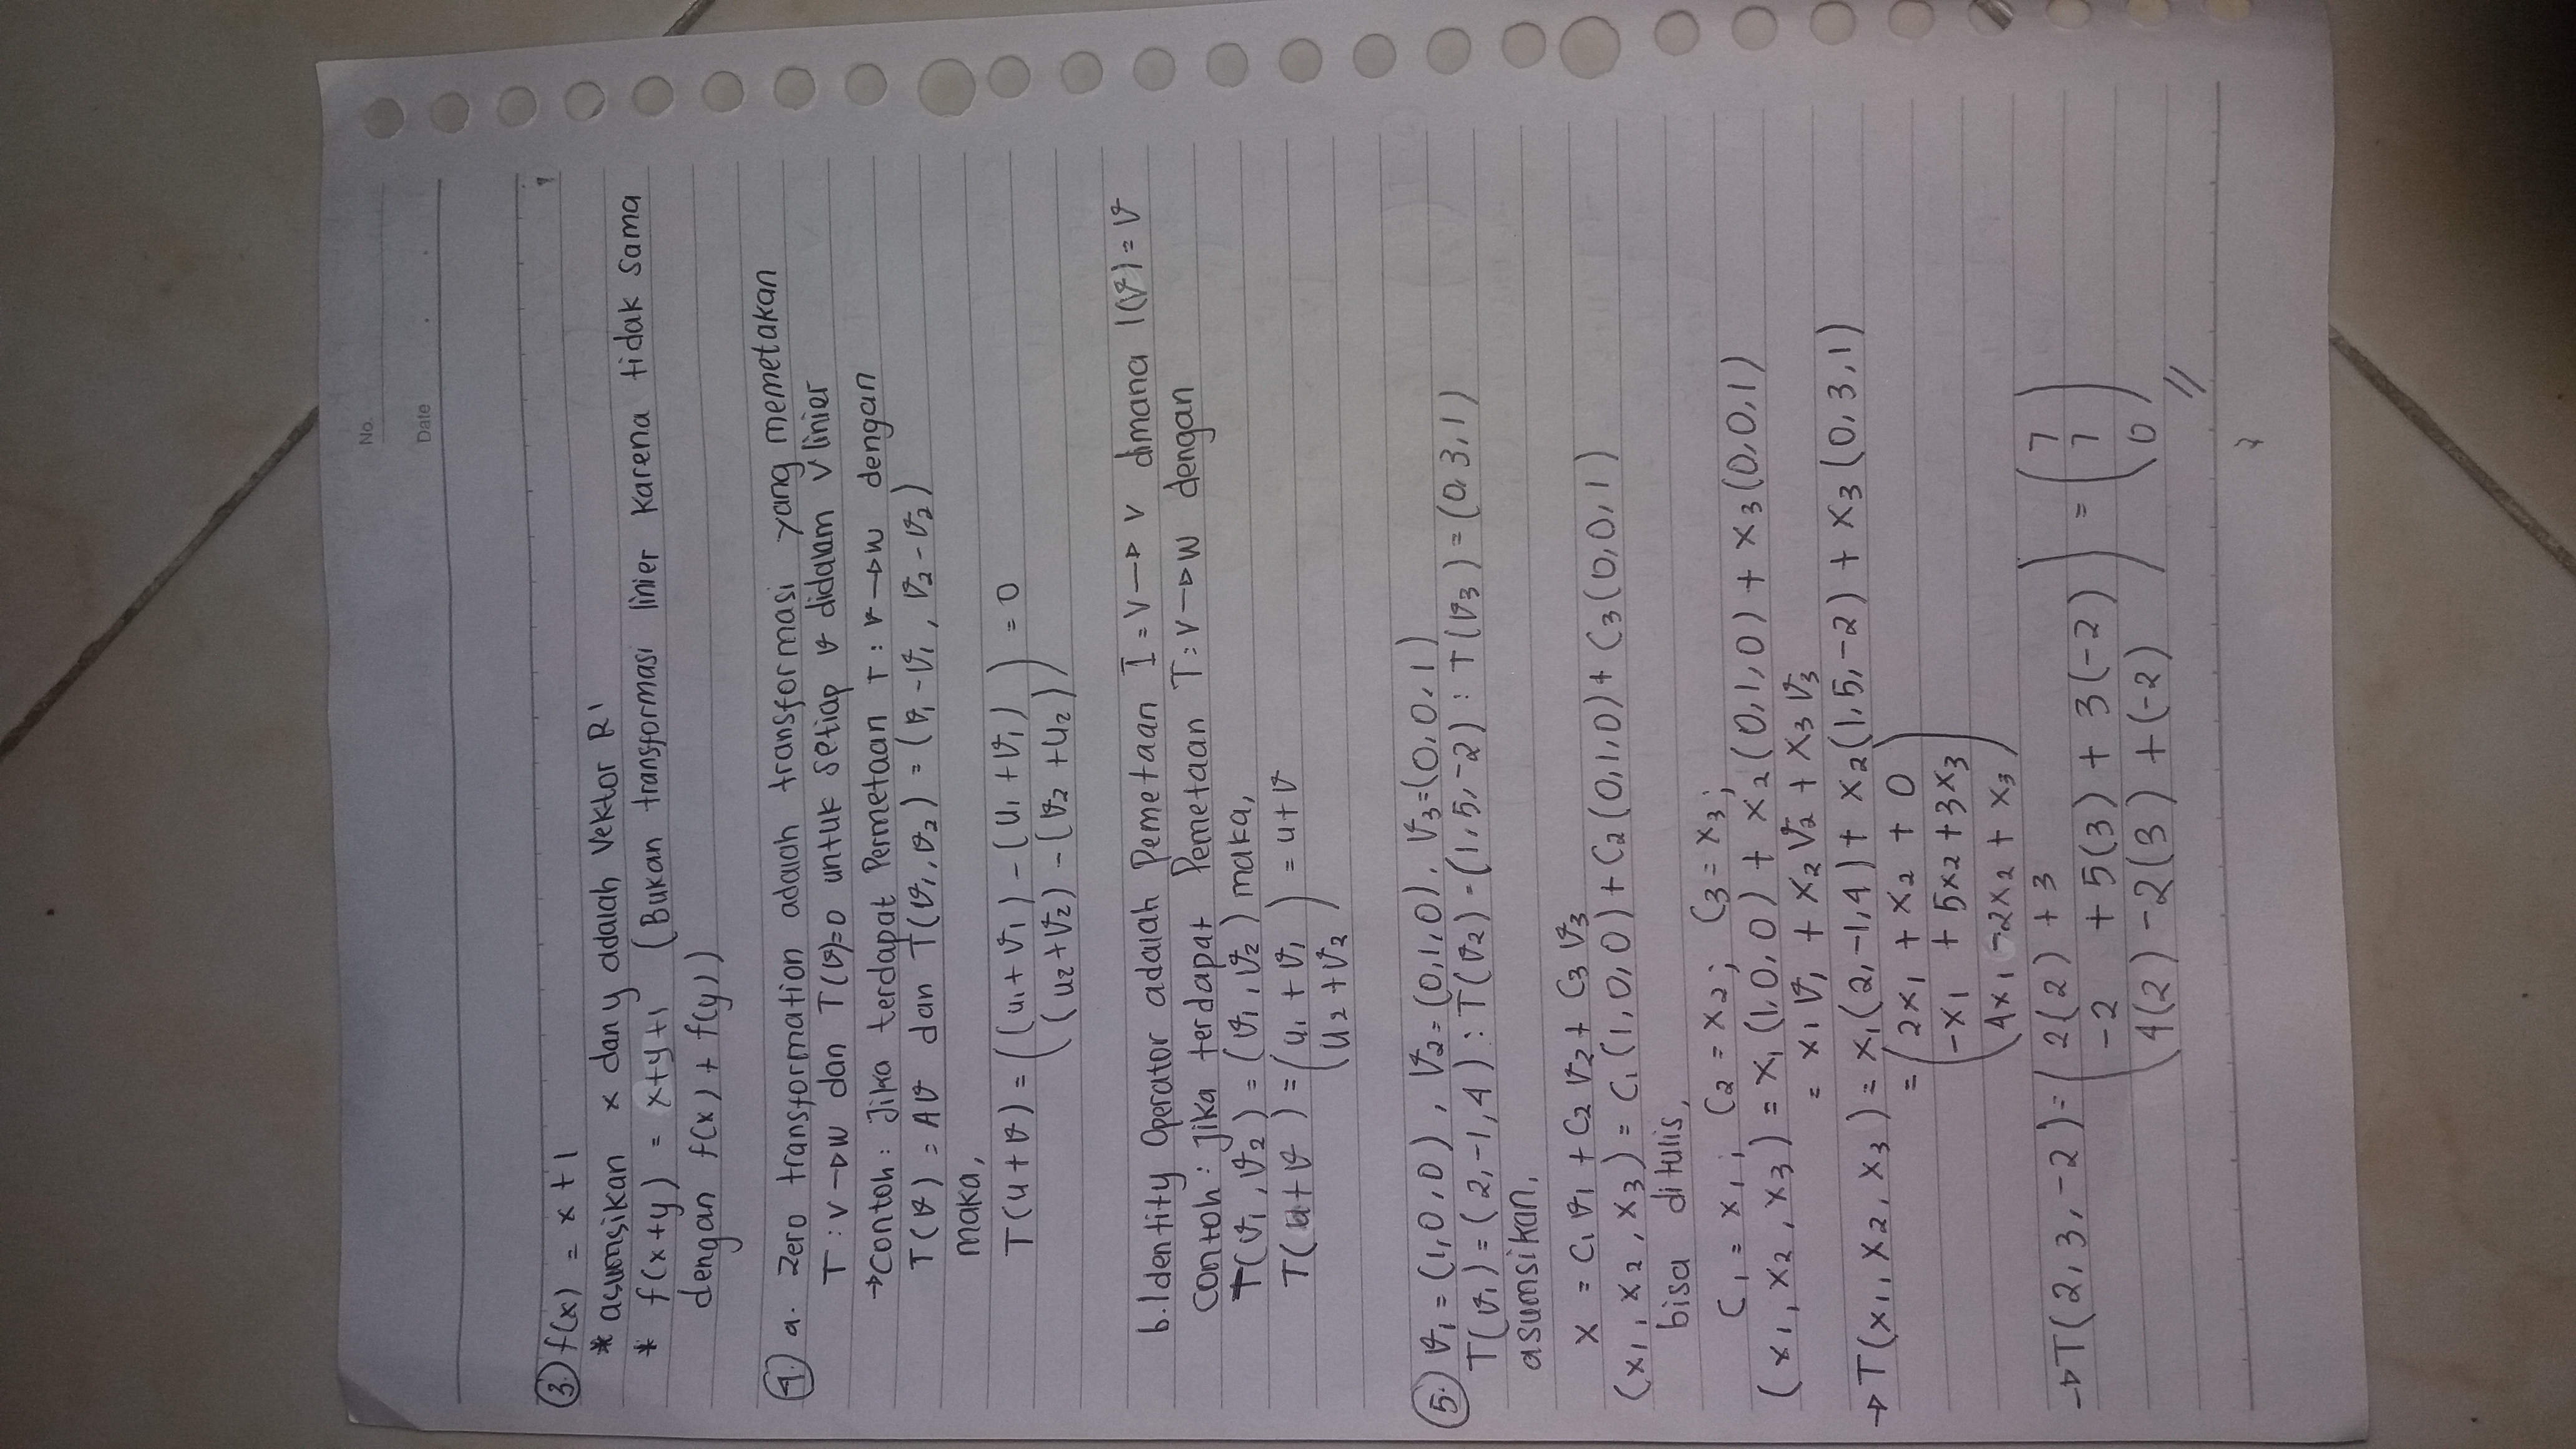 No.
Date
3. f(x) = x + 1
* asumsikan x dan y adalah Vektor R1
* f(x+y) = x+y+1 (Bukan transformasi linier karena tidak sama
dengan f(x) + f(y))
4. a. Zero transformation adalah transformasi yang memetakan
T : V → W dan T(v)=0 untuk setiap v didalam V linier
→ contoh : Jika terdapat Permetaan T : V → W dengan
T(v) = Av dan T(v1, v2) = (v1 - v1, v2 - v2)
maka,
T(u + v) = ( (u1 + v1) - (u1 + v1) ) = 0
( (u2 + v2) - (v2 + u2) )
b. Identity Operator adalah Pemetaan I = V → V dimana I(v) = v
contoh : Jika terdapat Pemetaan T : V → W dengan
T(v1, v2) = (v1, v2) maka,
T(u + v) = ( u1 + v1 ) = u + v
( u2 + v2 )
5. v1 = (1, 0, 0), v2 = (0, 1, 0), v3 = (0, 0, 1)
T(v1) = (2, -1, 4) : T(v2) = (1, 5, -2) : T(v3) = (0, 3, 1)
asumsikan,
x = c1 v1 + c2 v2 + c3 v3
(x1, x2, x3) = c1 (1, 0, 0) + c2 (0, 1, 0) + c3 (0, 0, 1)
bisa ditulis,
c1 = x1 ; c2 = x2 ; c3 = x3 ;
(x1, x2, x3) = x1 (1, 0, 0) + x2 (0, 1, 0) + x3 (0, 0, 1)
= x1 v1 + x2 v2 + x3 v3
→ T(x1, x2, x3) = x1 (2, -1, 4) + x2 (1, 5, -2) + x3 (0, 3, 1)
= ( 2x1 + x2 + 0 )
( -x1 + 5x2 + 3x3 )
( 4x1 - 2x2 + x3 )
→ T(2, 3, -2) = ( 2(2) + 3 ) ( 7 )
( -2 + 5(3) + 3(-2) ) = ( 7 )
( 4(2) - 2(3) + (-2) ) ( 0 ) //